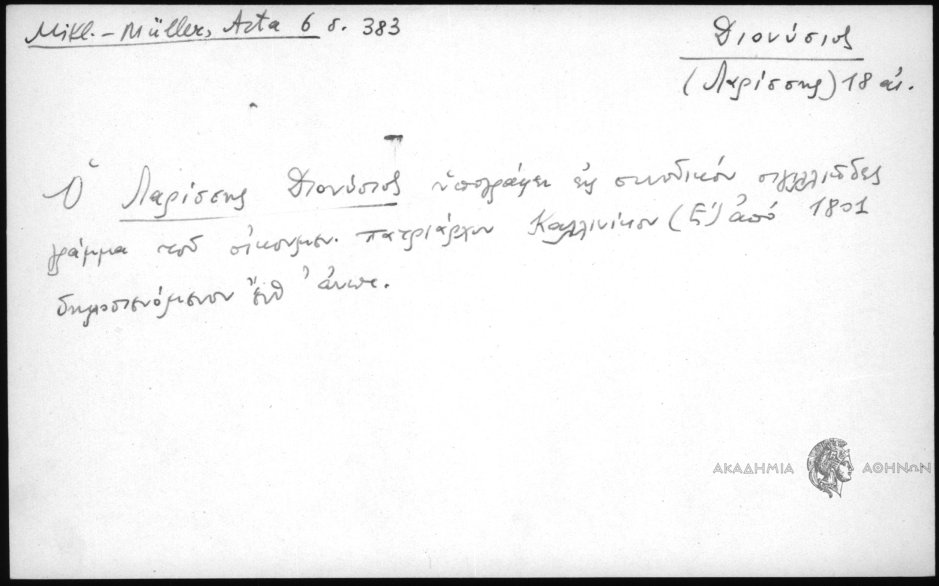 Mikl.-Müller, Acta 6 σ. 383
Διονύσιος
(Λαρίσσης) 18 αἰ.
Ὁ Λαρίσσης Διονύσιος ὑπογράφει εἰς συνοδικόν σιγιλλιῶδες
γράμμα τοῦ οἰκουμεν. πατριάρχου Καλλινίκου (Ε') ἀπό 1801
δημοσιευόμενον ἔνθ' ἀνωτ.
ΑΚΑΔΗΜΙΑ ΑΘΗΝΩΝ